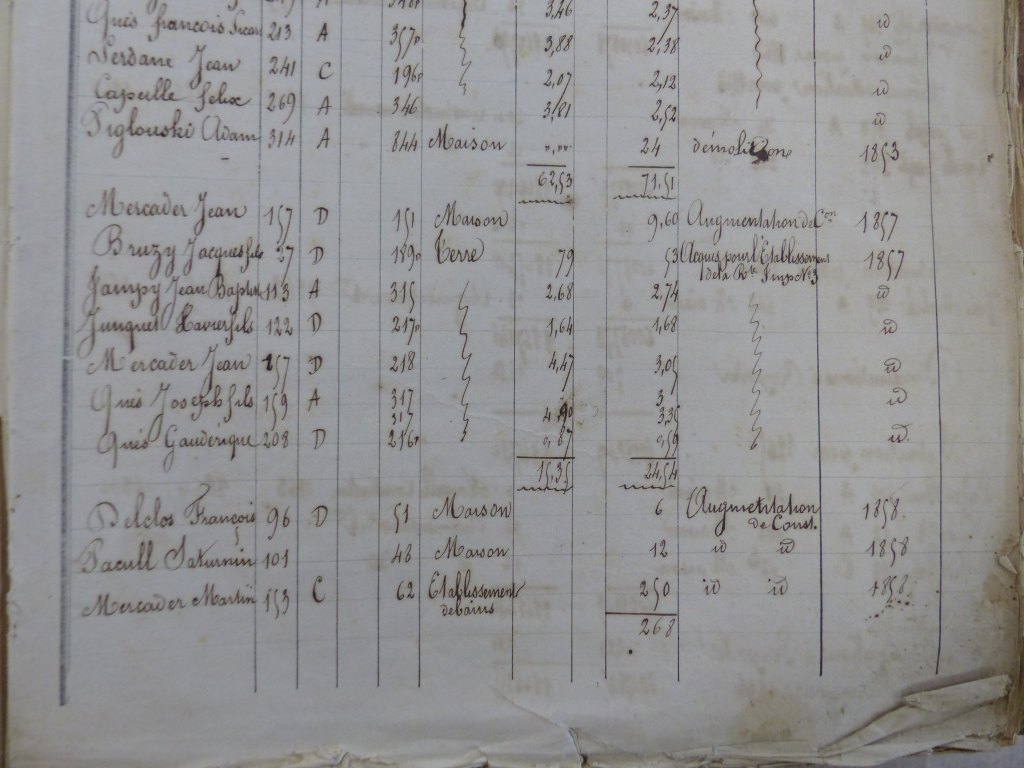 Qués françois 213 A 357p 3,88 2,38 id
Serdane Jean 241 C 196p 2,07 2,12 id
Capeille felix 269 A 346 3,81 2,52 id
Piglouski Adam 314 A 844 Maison 24 démolition 1853
62,53 71,51
Mercader Jean 157 D 151 Maison 9,60 Augmentation de Con 1857
Bruzy Jacques fils 37 D 189p Terre 79 53 Acquis pour l'Etablissement 1857
de la Rte Imple No 3
Jampy Jean Baptiste 113 A 315 2,68 2,74 id
Junquet Xavier fils 122 D 217p 1,64 1,68 id
Mercader Jean 157 D 218 4,47 3,05 id
Qués Joseph fils 159 A 317 id
Qués Gaudérique 208 D 216p 0,87 0,59 id
15,35 24,54
Delclos François 96 D 51 Maison 6 Augmentation 1858.
de Const.
Pacull Saturnin 101 48 Maison 12 id id 1858
Mercader Martin 153 C 62 Etablissement 250 id id 1858.
de bains
268